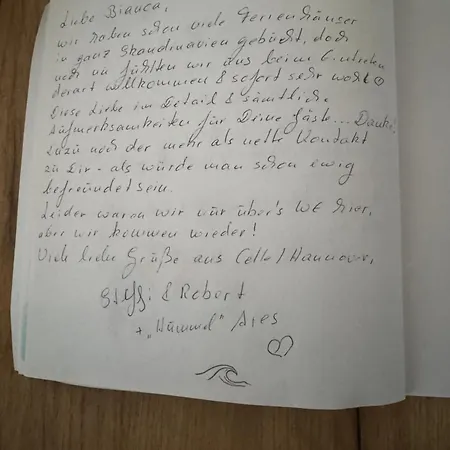 Liebe Bianca,
wir haben schon viele Ferienhäuser
in ganz Skandinavien gebucht, doch
noch nie fühlten wir uns beim Eintreten
derart willkommen & sofort sehr wohl ♡
Diese Liebe im Detail & sämtliche
Aufmerksamkeiten für Deine Gäste... Danke!
Dazu noch der mehr als nette Kontakt
zu Dir - als würde man schon ewig
befreundet sein.
Leider waren wir nur über's WE hier,
aber wir kommen wieder!
Viele liebe Grüße aus Celle/Hannover,
Steffi & Robert
+ "Hümmel" Ares